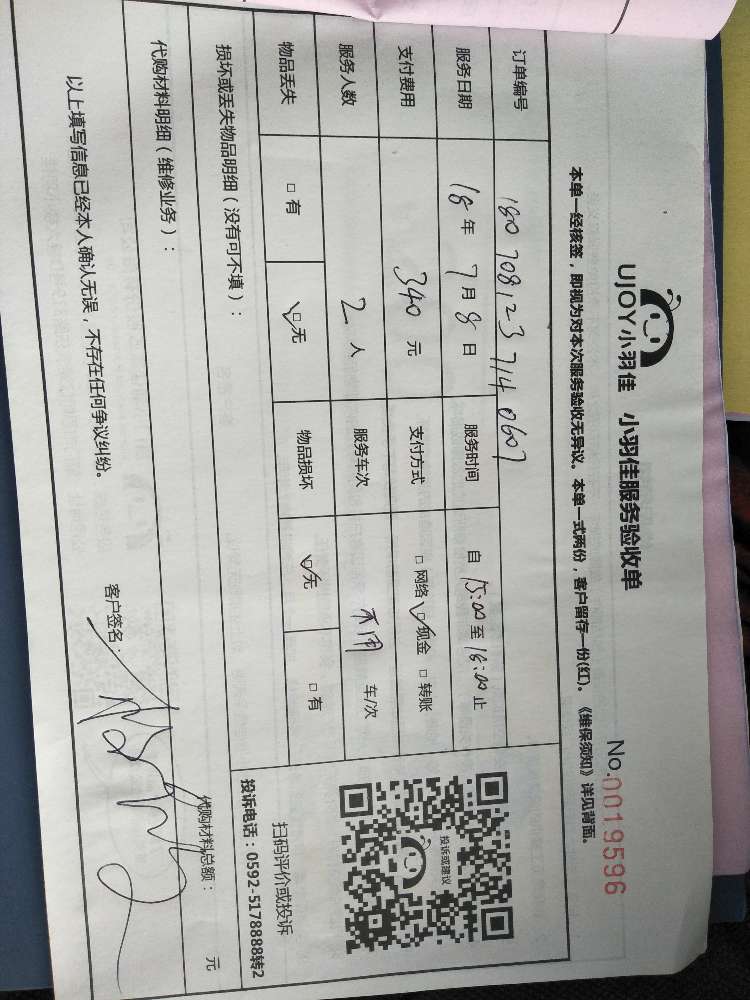 UJOY小羽佳 小羽佳服务验收单
No.0019596
本单一经核签，即视为对本次服务验收无异议。本单一式两份，客户留存一份(红)。《维保须知》详见背面。
订单编号 1807081237140607
服务日期 18年7月8日 服务时间 自15:00至16:00止
支付费用 340元 支付方式 □网络 ☑现金 □转账
服务人数 2人 服务车次 不用 车/次
物品丢失 □有 ☑无 物品损坏 ☑无 □有
投诉或建议
扫码评价或投诉
投诉电话：0592-5178888转2
损坏或丢失物品明细（没有可不填）：
代购材料明细（维修业务）： 代购材料总额： 元
以上填写信息已经本人确认无误，不存在任何争议纠纷。 客户签名：